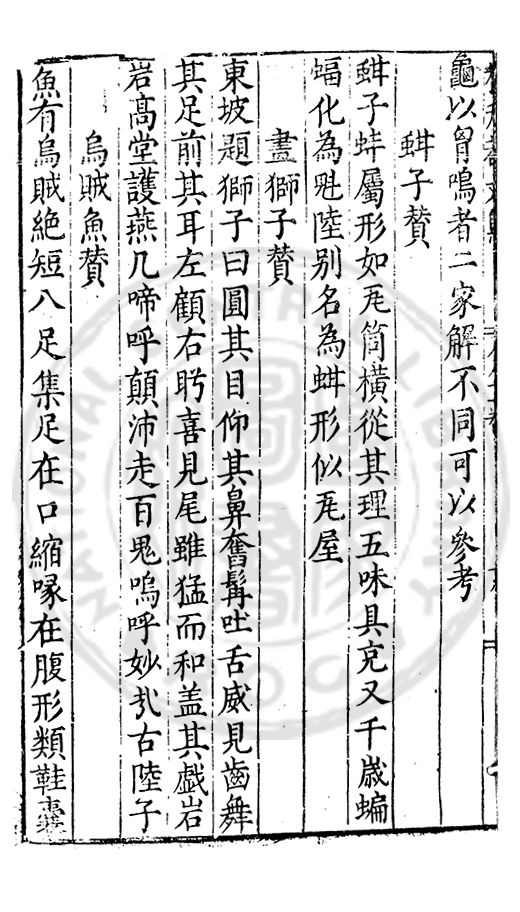 龜以胷鳴者二家解不同可以參考
蚶子賛
蚶子蚌屬形如瓦筒橫從其理五味具充又千歲蝙
蝠化為魁陸別名為蚶形似瓦屋
畫獅子賛
東坡題獅子曰圓其目仰其鼻奮髯吐舌威見齒舞
其足前其耳左顧右盻喜見尾雖猛而和盖其戲岩
岩高堂護燕几啼呼顛沛走百鬼嗚呼妙㢤古陸子
烏賊魚賛
魚有烏賊絶短八足集足在口縮喙在腹形類鞋囊